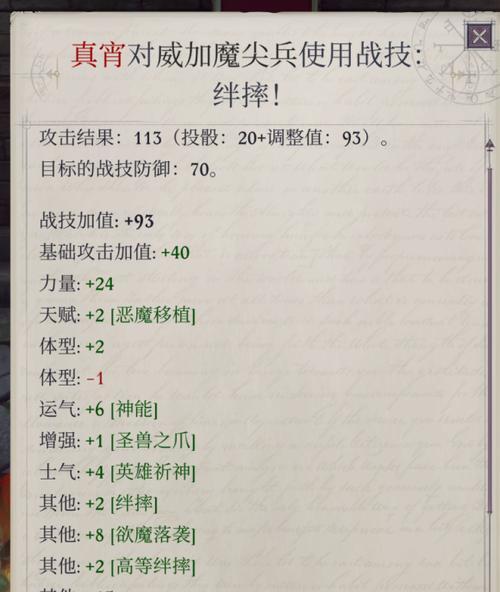 真宵对威加魔尖兵使用战技：
绊摔！
攻击结果：113（投骰：20+调整值：93）。
目标的战技防御：70。
战技加值：+93
基础攻击加值：+40
力量：+24
天赋：+2 [恶魔移植]
体型：+2
体型：-1
运气：+6 [神能]
增强：+1 [圣兽之爪]
士气：+4 [英雄祈神]
其他：+2 [绊摔]
其他：+8 [欲魔落袭]
其他：+2 [高等绊摔]